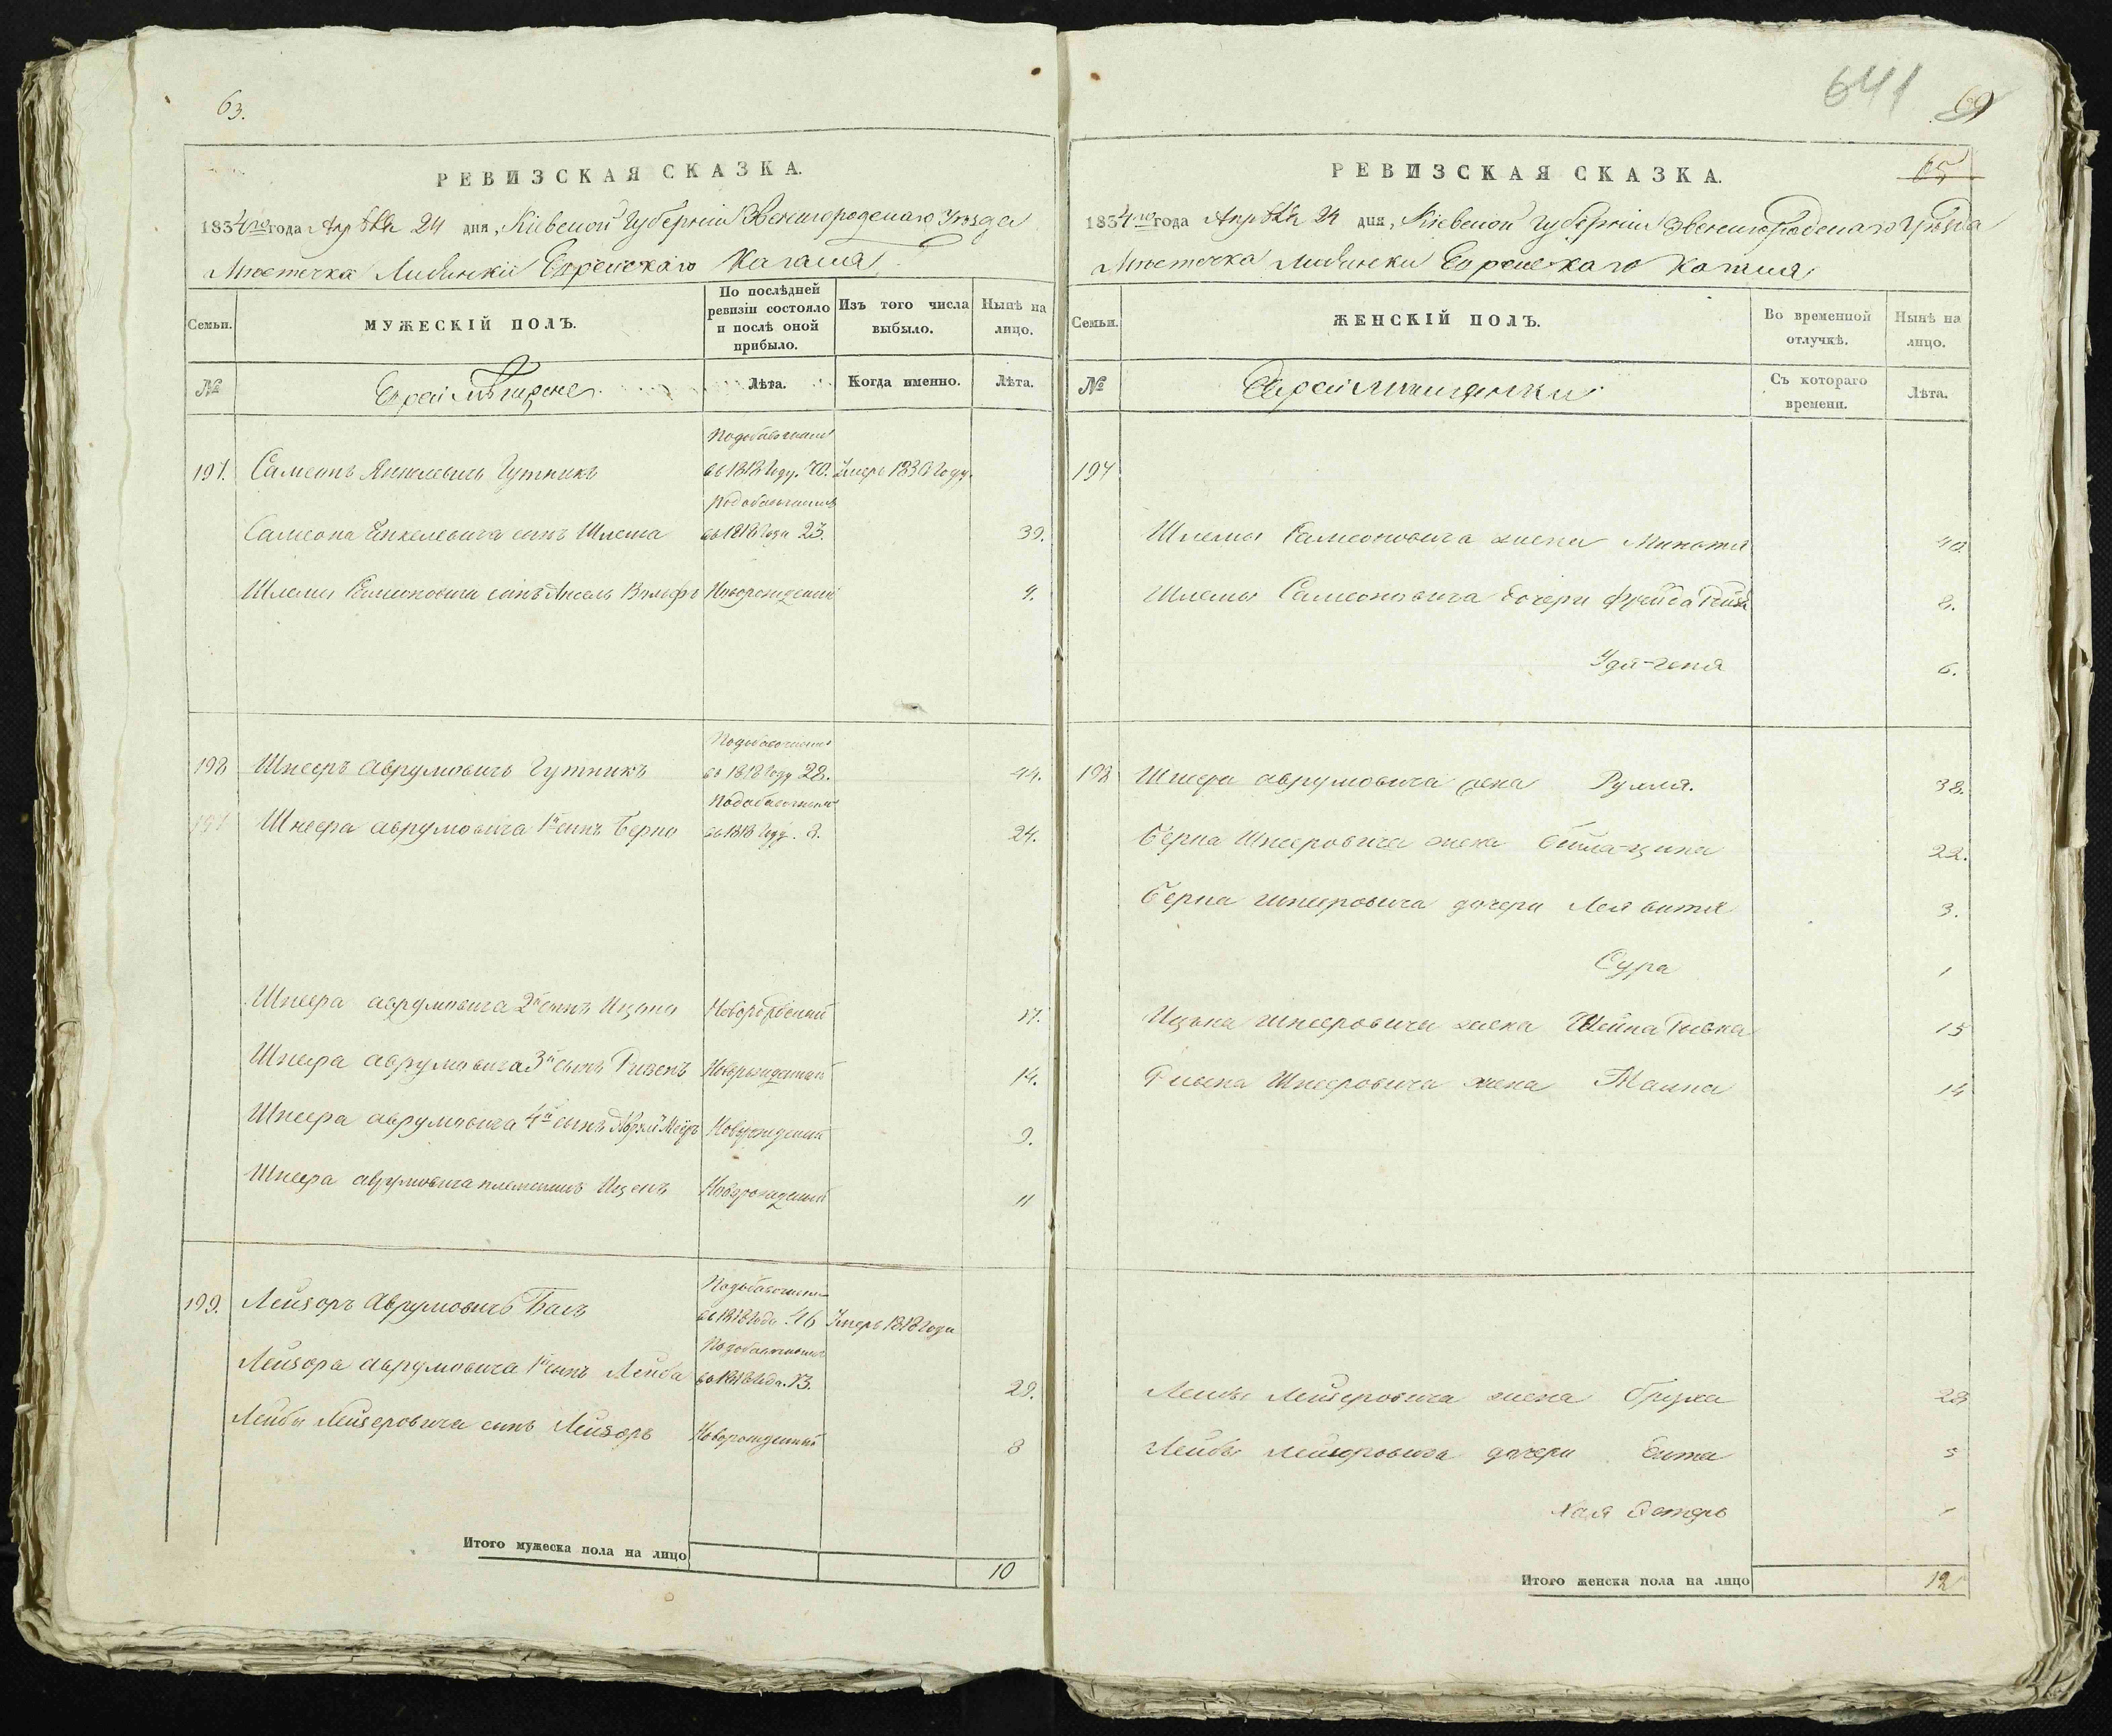 63.
РЕВИЗСКАЯ СКАЗКА.
1834го года Апрѣля 24 дня, Кіевской Губерніи Звенигородскаго Уѣзда
Мѣстечка Лисянки Еврейскаго Кагала
Семьи.
МУЖЕСКІЙ ПОЛЪ.
По послѣдней ревизіи состояло и послѣ оной прибыло.
Изъ того числа выбыло.
Нынѣ на лицо.
№
Евреи Мѣщане
Лѣта.
Когда именно.
Лѣта.
197. Самсонъ Янкелевичъ Гутникъ во 1818 Году. 70. Умеръ 1830 Году.
Самсона Янкелевича сынъ Шлема во 1818 Года 23. 39.
Шлемы Самсоновича сынъ Ансель Вольфъ Новорожденный 4.
198 Шнееръ Аврумовичъ Гутникъ во 1818 Году 28. 44.
Шнеера Аврумовича 1й сынъ Берко во 1818 Году. 8. 24.
Шнеера Аврумовича 2й сынъ Ицько Новорожденный 17.
Шнеера Аврумовича 3й сынъ Ривенъ Новорожденный 14.
Шнеера Аврумовича 4й сынъ Мееръ Новорожденный 9.
Шнеера Аврумовича племянникъ Новорожденный 11
199. Лейзоръ Аврумовичъ во 1818 Года 46 Умеръ 1818 Года
Лейзора Аврумовича 1й сынъ Лейба во 1818 Года. 13. 29.
Лейбы Лейзеровича сынъ Лейзоръ Новорожденный 8
Итого мужеска пола на лицо 10
641
69
65
РЕВИЗСКАЯ СКАЗКА.
1834го года Апрѣля 24 дня, Кіевской Губерніи Звенигородскаго Уѣзда
Мѣстечка Лисянки Еврейскаго Кагала
Семьи.
ЖЕНСКІЙ ПОЛЪ.
Во временной отлучкѣ.
Нынѣ на лицо.
№
Евреи Мѣщанки
Съ котораго времени.
Лѣта.
197
Шлемы Самсоновича жена 40
Шлемы Самсоновича дочери Фрейда Рейза 8.
6.
198 Шнеера Аврумовича жена Рухля. 38.
Берка Шнееровича жена Бейла-Ципа 22.
Берка Шнееровича дочери Лея 3.
Сура 1
Ицька Шнееровича жена Шейна Ривка 15
Ривена Шнееровича жена 14
Лейбы Лейзеровича жена Бруха 28
Лейбы Лейзеровича дочери Ента 5
Хая Эстеръ 1
Итого женска пола на лицо 12